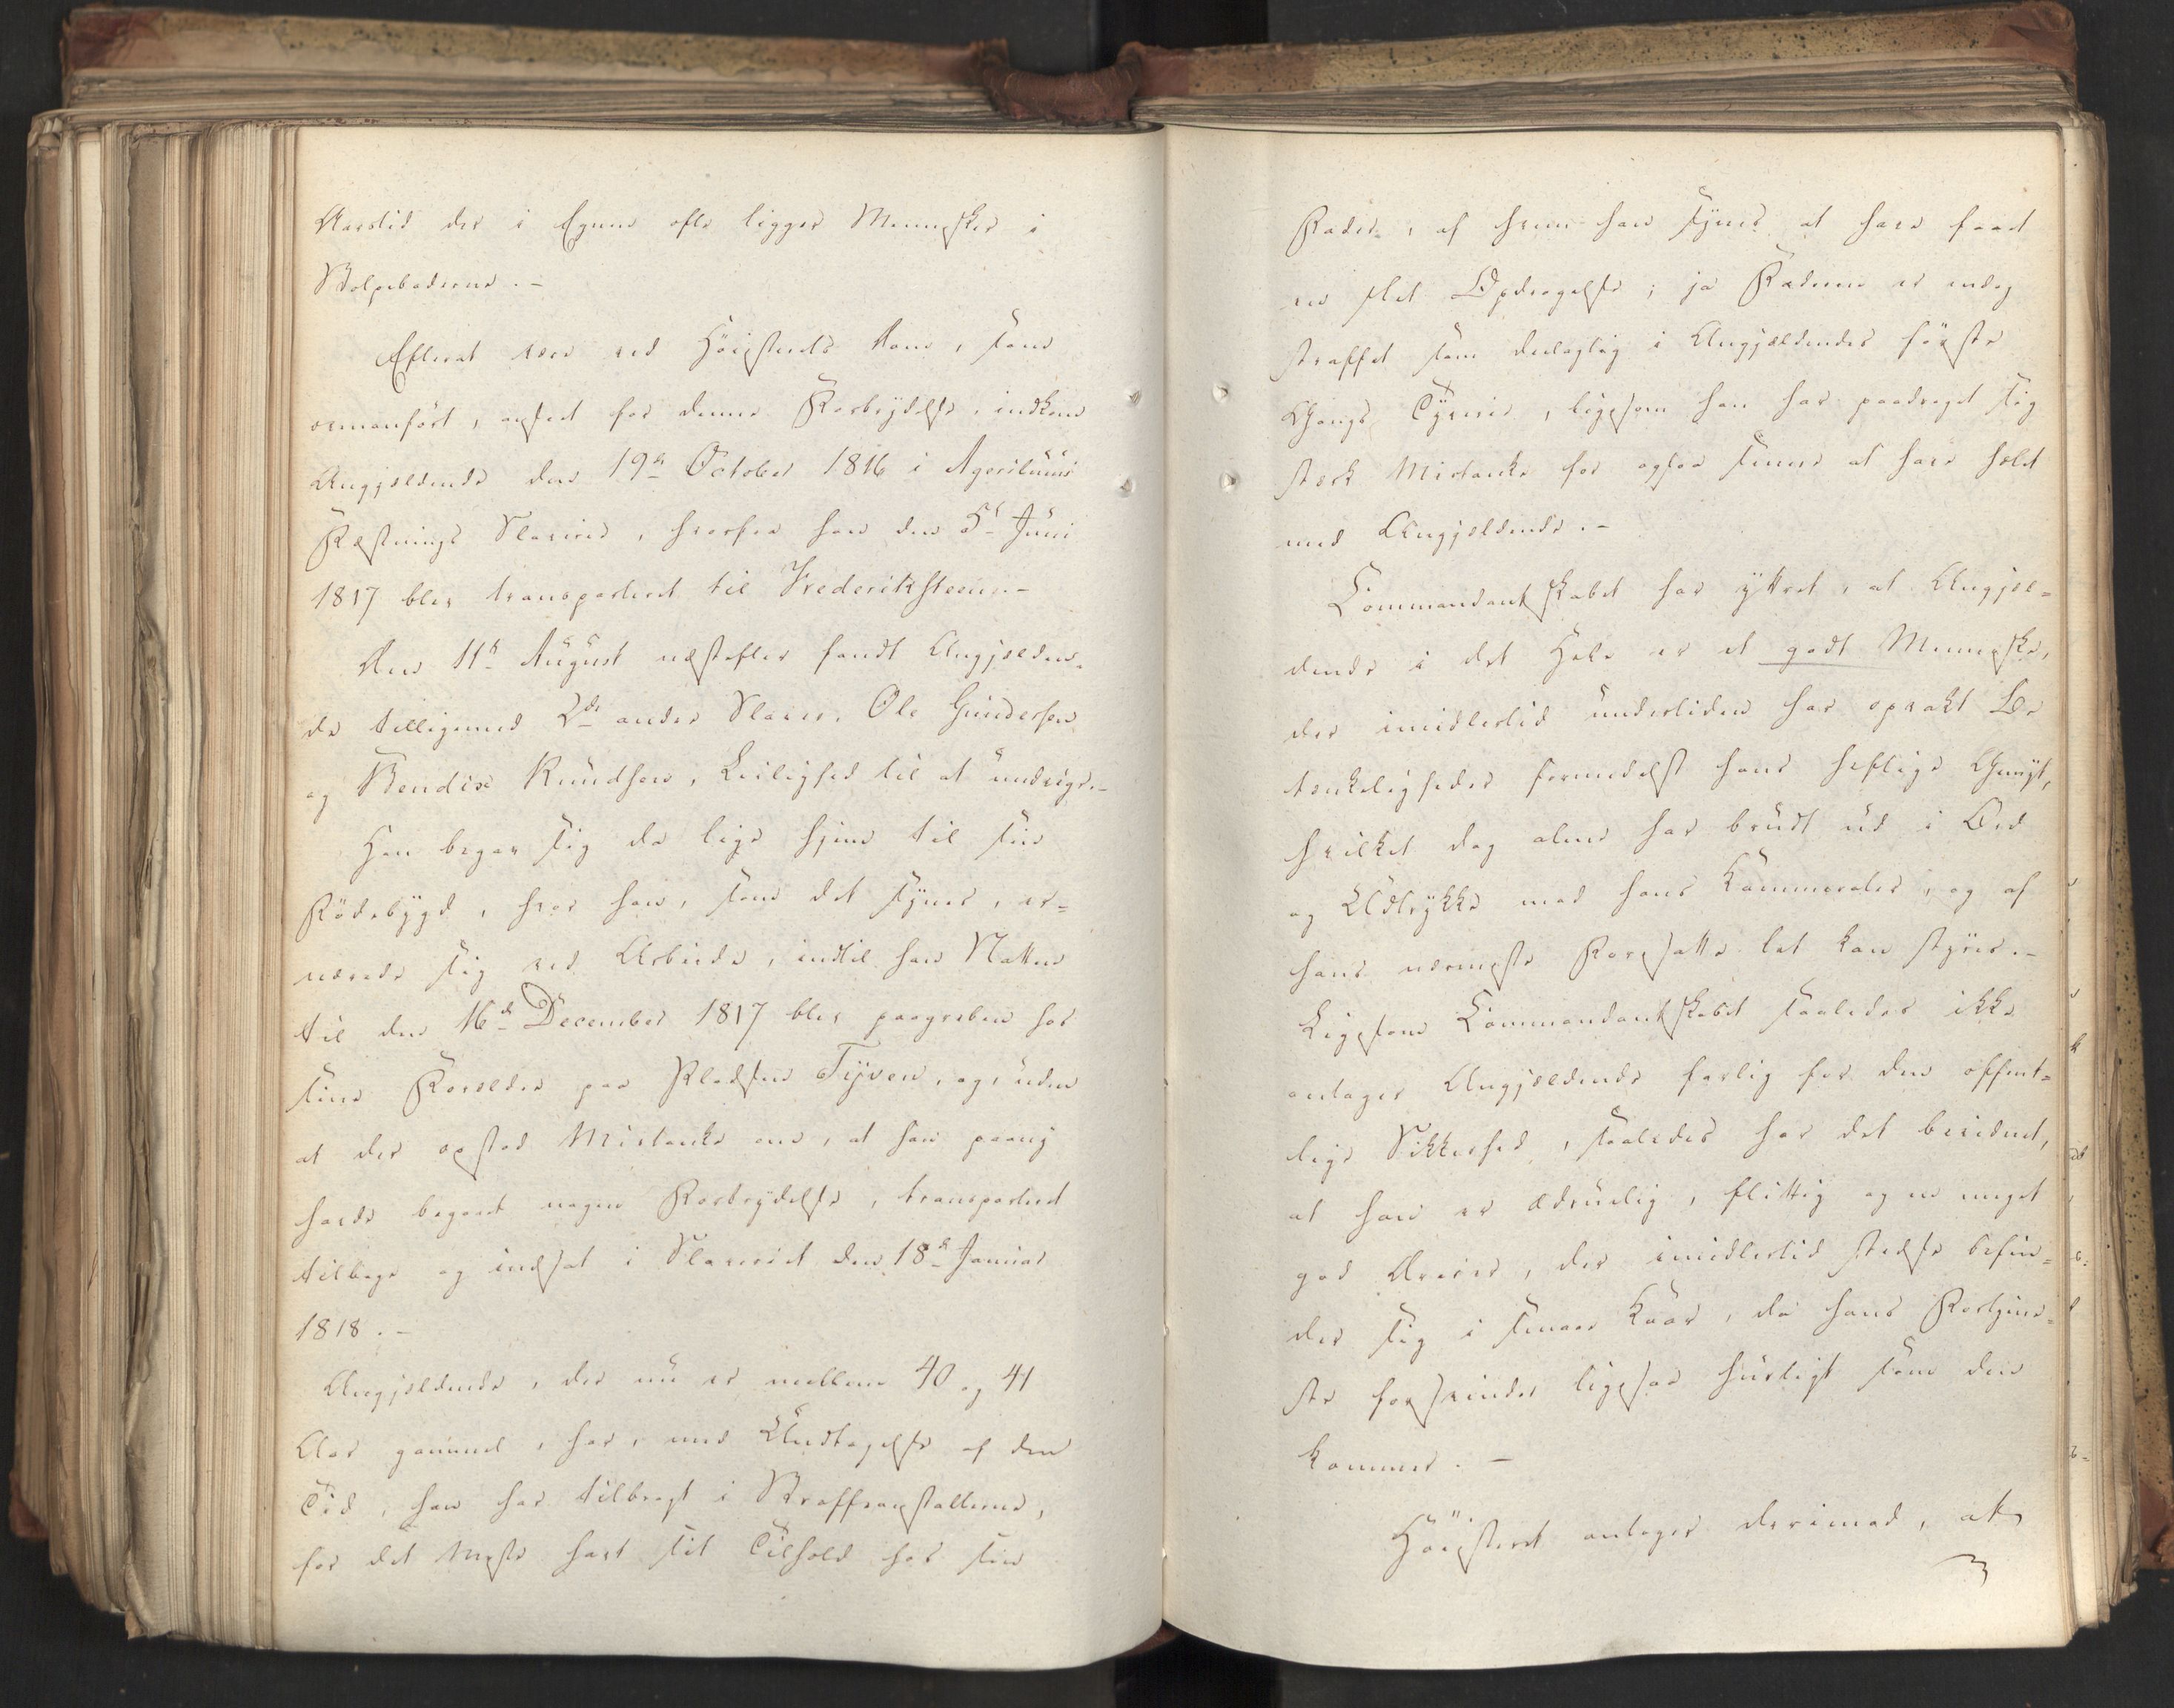 Aarstid der i Egnen ofte ligger Mennesker i
Stolpeboderne. -
Efterat være ved Höiesterets Dom, som
ovenanfört, anseet for denne Forbrydelse, indkom
Angjældende den 19de October 1816 i Agershuus
Fæstnings Slaverie, hvorfra han den 5te Juni
1817 blev transporteret til Frederiksteen. -
Den 11te August næstefter fandt Angjælden-
de tilligemed 2de andre Slaver, Ole Gundersen
og Bendix Knudsen, Leilighed til at undvige. -
Han begav sig da lige hjem til sin
Födebygd, hvor han, som det synes, er-
nærede sig ved Arbeide, indtil han Natten
til den 16de December 1817 blev paagreben hos
sine Forældre paa Pladsen Tyven, og, uden
at der opstod Mistanke om, at han paany
havde begaaet nogen Forbrydelse, transporteret
tilbage og indsat i Slaveriet den 18de Januar
1818. -
Angjældende, der nu er mellem 40 og 41
Aar gammel, har, med Undtagelse af den
Tid, han har tilbragt i Straffeanstalterne,
for det Meste havt sit Tilhold hos sin
Fader, af hvem han synes at have faaet
en slet Opdragelse; ja Faderen er endog
straffet som deelagtig i Angjældendes förste
Gangs Tyverie, ligesom han har paadraget sig
stærk Mistanke for ogsaa senere at have holdt
med Angjældende. -
Commandantskabet har yttret, at Angjæl-
dende i det Hele er et godt Menneske,
der imidlertid undertiden har opvakt Be
tænkeligheder formedelst hans heftige Gemyt,
hvilket dog alene har brudt ud i Ord
og Udtrykke mod hans Kammerater, og af
hans nærmeste Foresatte let kan styres. -
Ligesom Commandantskabet saaledes ikke
antager Angjældende farlig for den offent-
lige Sikkerhed, saaledes har det bevidnet,
at han er ædruelig, flittig og en meget
god Arbeider, der imidlertid stedse befin-
der sig i smaae Kaar, da hans Fortjene-
ste forsvinder ligesaa hurtigt som den
kommer. -
Höiesteret antager derimod, at